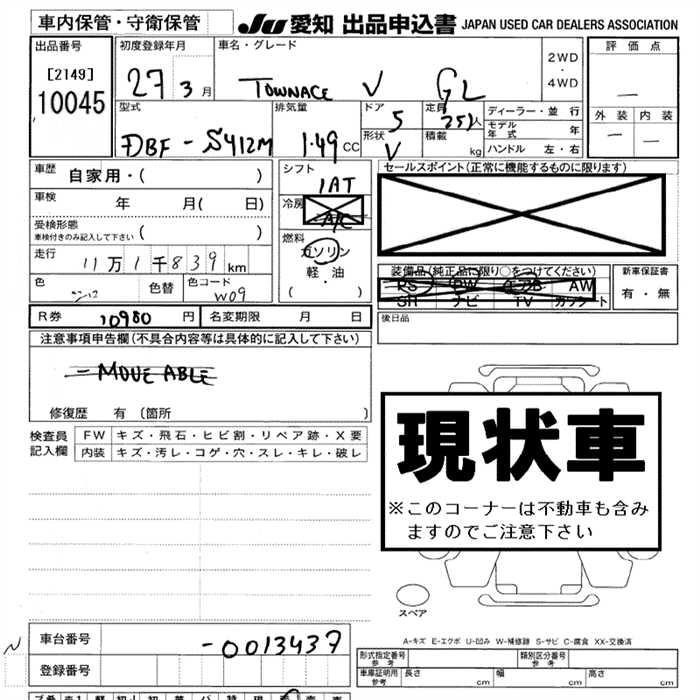 車内保管・守衛保管
JU 愛知 出品申込書 JAPAN USED CAR DEALERS ASSOCIATION
出品番号
[2149]
10045
初度登録年月
27 3月
車名・グレード
TOWNACE V GL
2WD
・
4WD
評価点
—
外装 内装
— —
型式
DBF - S412M
排気量
1.49 CC
ドア
5
形状
V
定員
2511人
積載
kg
ディーラー・並行
モデル年式 年
ハンドル 左・右
車歴 自家用・( )
車検 年 月( 日)
受検形態
車検付きのみ記入して下さい ( )
走行 11万1千839km
色
色替
色コード
W09
シフト
1AT
冷房
A/C
燃料
ガソリン
軽・油
( )
セールスポイント(正常に機能するものに限ります)
装備品(純正品に限り○をつけてください)
PS PW エアB AW
SR ナビ TV カワシート
新車保証書
有・無
R券 10980 円
名変期限 月 日
後日品
注意事項申告欄(不具合内容等は具体的に記入して下さい)
- MOVE ABLE
修復歴 有 (箇所 )
検査員記入欄
FW キズ・飛石・ヒビ割・リペア跡・X要
内装 キズ・汚レ・コゲ・穴・スレ・キレ・破レ
現状車
※このコーナーは不動車も含み
ますのでご注意下さい
スペア
A-キズ E-エクボ U-凹み W-補修跡 S-サビ C-腐食 XX-交換済
車台番号 -0013437
登録番号
形式指定番号
参考
類別区分番号
参考
車庫証明用
参考
長さ cm 幅 cm 高さ cm